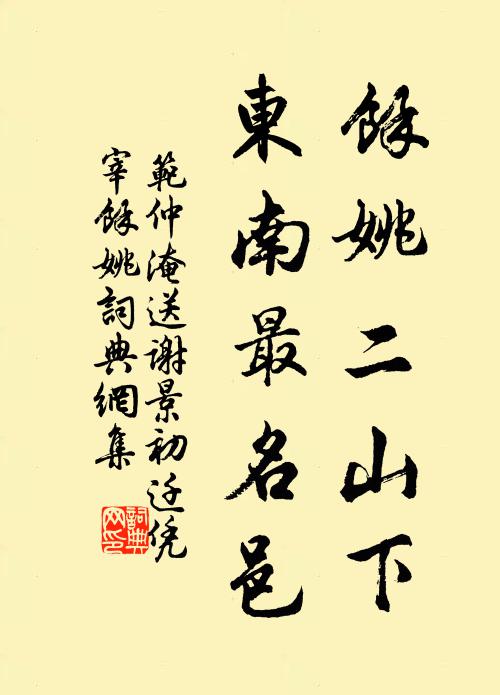 餘姚二山下
東南最名邑
範仲淹送謝景初迁凭
宰餘姚詞典網集
詞典网印